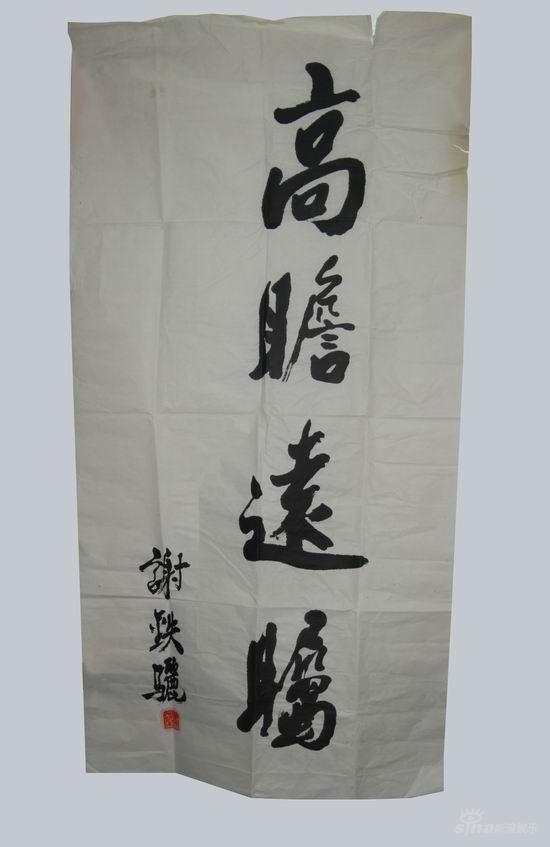 高瞻遠矚
謝鉄驪
sina新浪娱乐